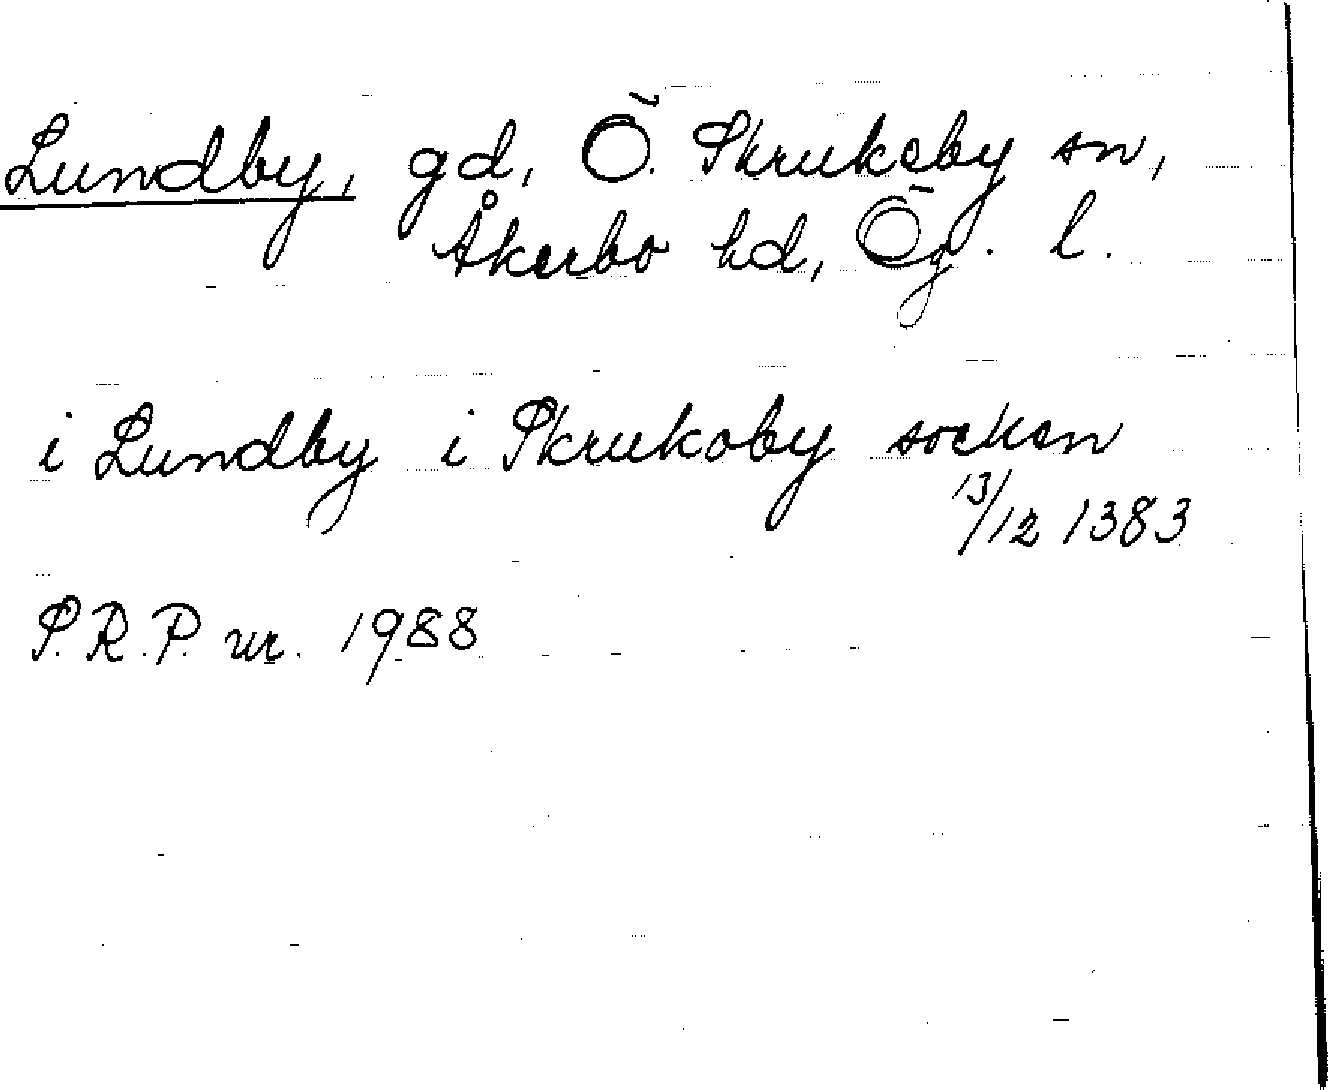 Lundby, gd, Ö. Skrukeby sn,
Åkerbo hd, Ög. l.
i Lundby i Skrukoby socken
13/12 1383
S.R.P. nr. 1988